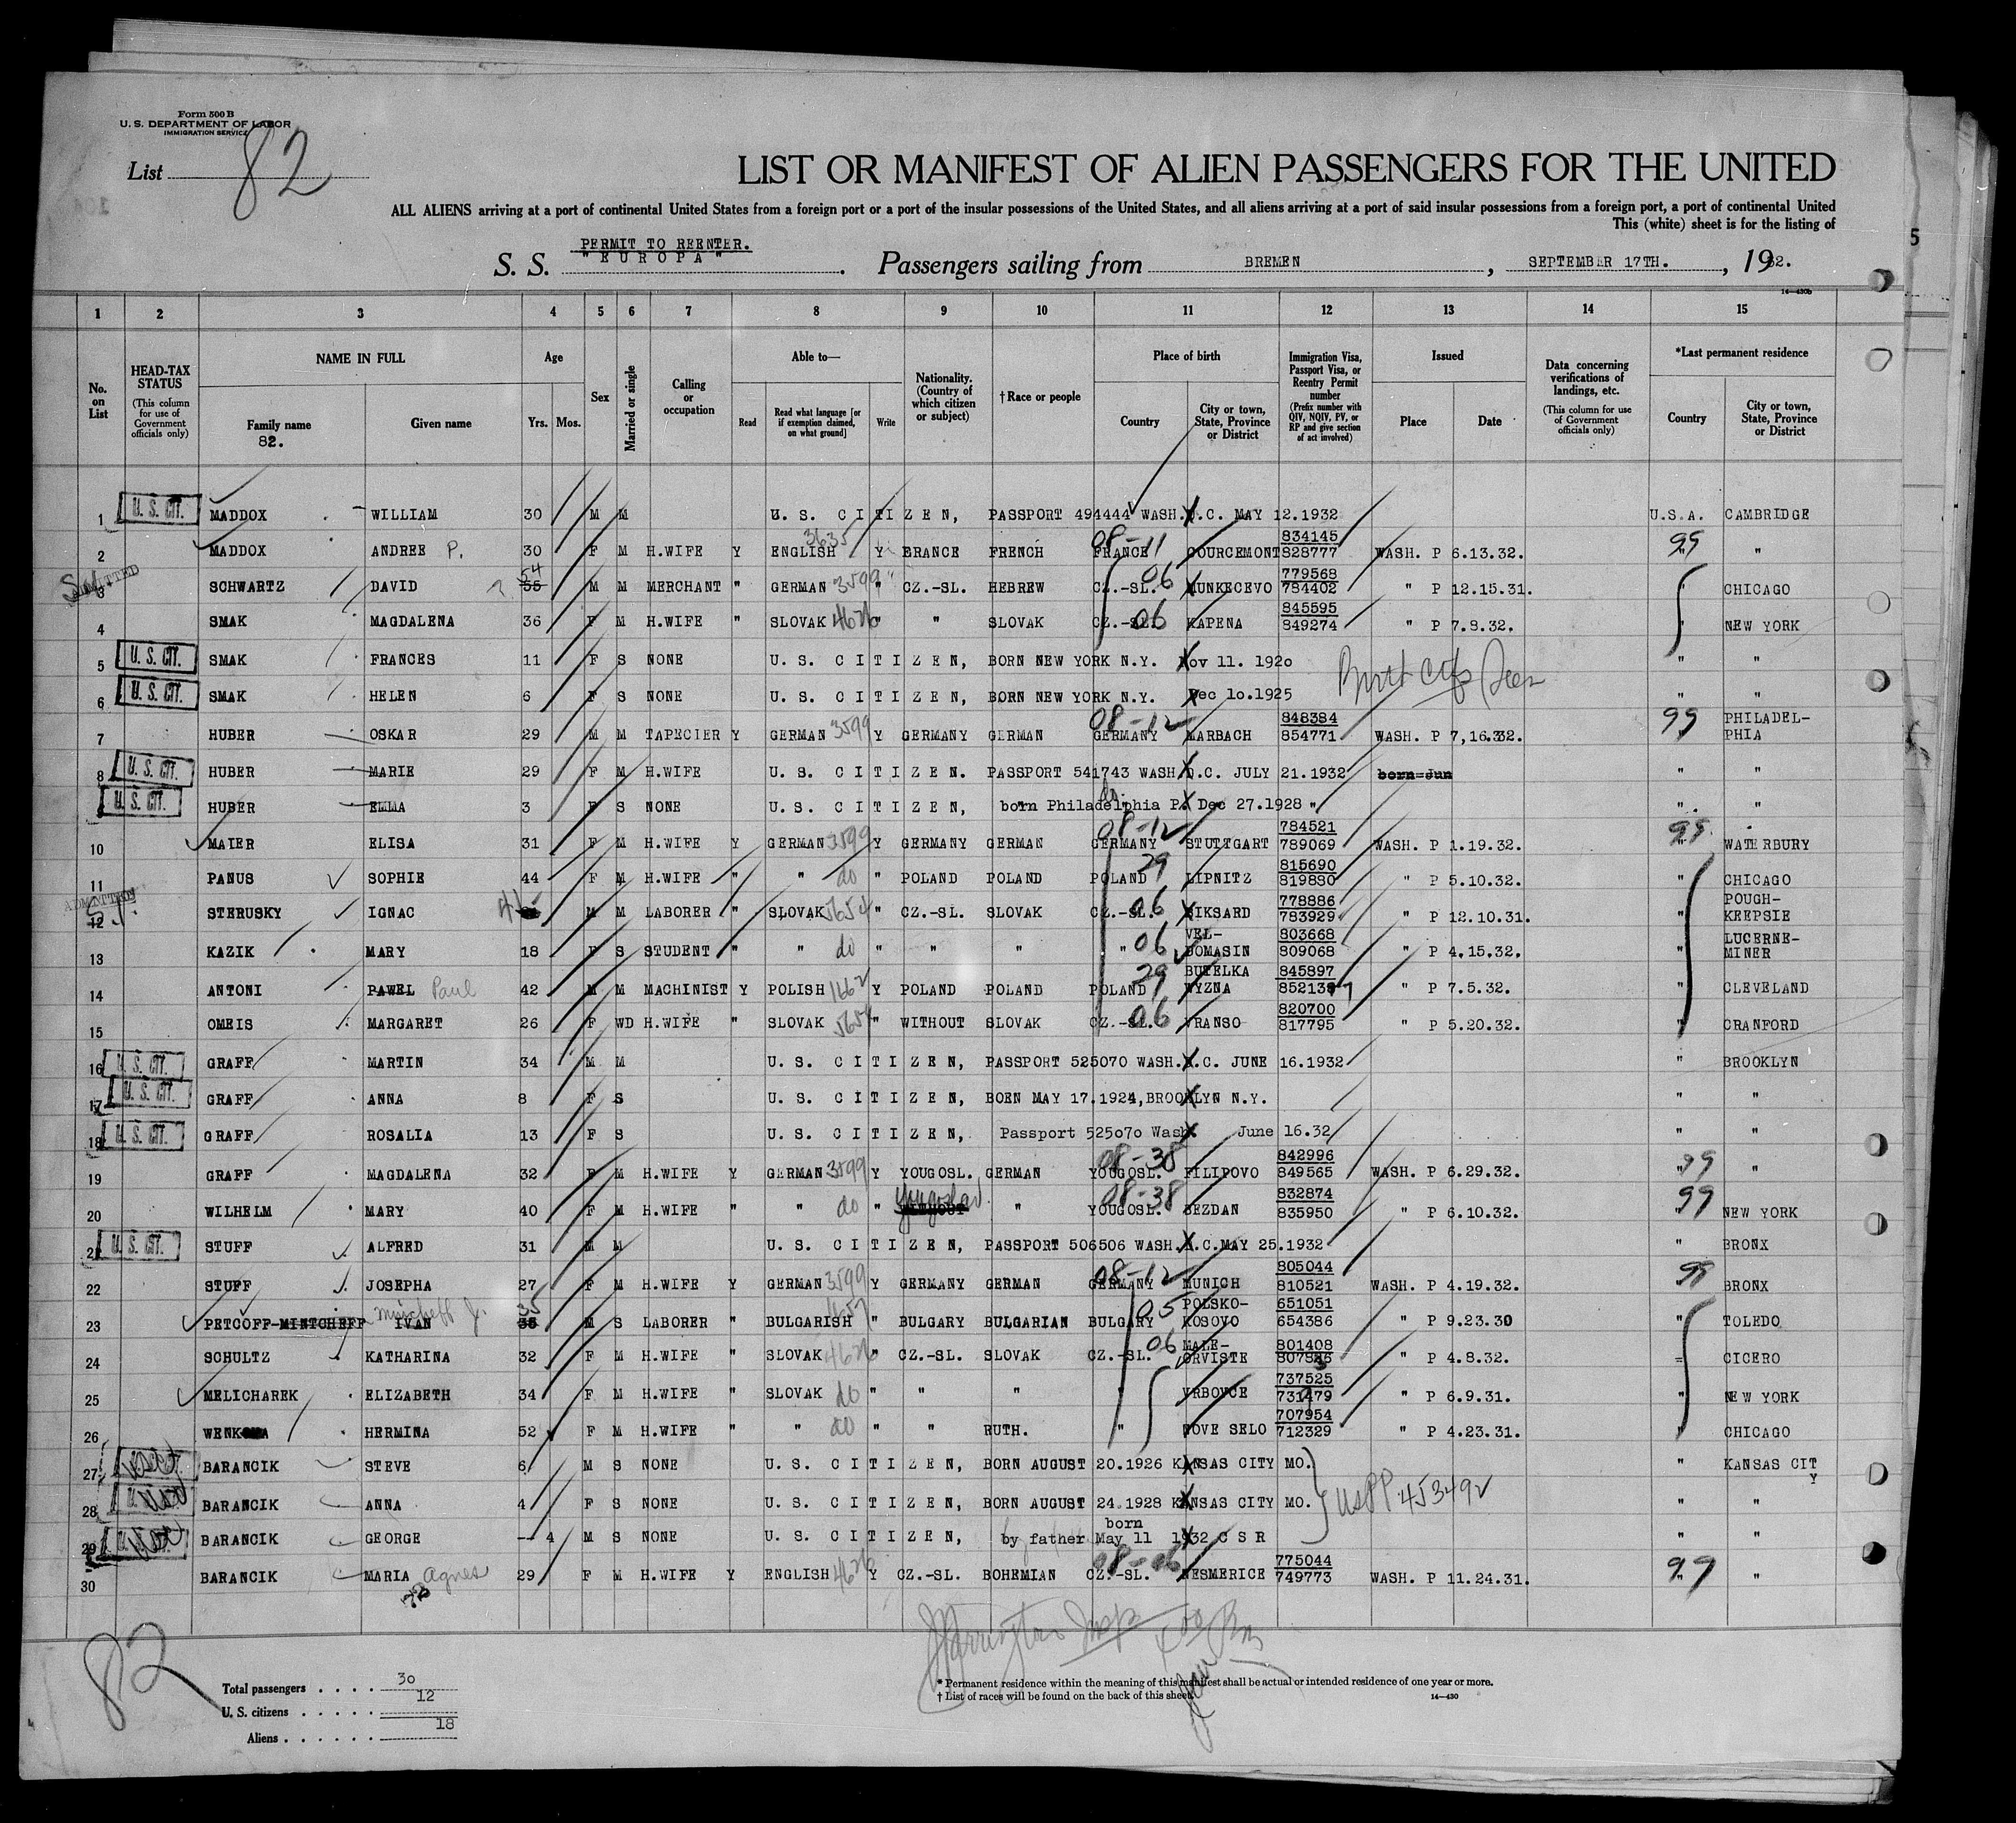 Form 500 B
U. S. DEPARTMENT OF LABOR
IMMIGRATION SERVICE
List 82
LIST OR MANIFEST OF ALIEN PASSENGERS FOR THE UNITED
ALL ALIENS arriving at a port of continental United States from a foreign port or a port of the insular possessions of the United States, and all aliens arriving at a port of said insular possessions from a foreign port, a port of continental United
This (white) sheet is for the listing of
PERMIT TO REENTER.
S. S. "EUROPA" . Passengers sailing from BREMEN , SEPTEMBER 17TH. , 1932.
14—430b
1 2 3 4 5 6 7 8 9 10 11 12 13 14 15
No. on List
HEAD-TAX STATUS (This column for use of Government officials only)
NAME IN FULL
Family name
82.
Given name
Age
Yrs. Mos.
Sex
Married or single
Calling or occupation
Able to—
Read
Read what language [or if exemption claimed, on what ground]
Write
Nationality. (Country of which citizen or subject)
†Race or people
Place of birth
Country
City or town, State, Province or District
Immigration Visa, Passport Visa, or Reentry Permit number (Prefix number with QIV, NQIV, PV, or RP and give section of act involved)
Issued
Place
Date
Data concerning verifications of landings, etc. (This column for use of Government officials only)
*Last permanent residence
Country
City or town, State, Province or District
1 U. S. CIT. MADDOX WILLIAM 30 M M U. S. CITIZEN, PASSPORT 494444 WASH.D.C. MAY 12.1932 U.S.A. CAMBRIDGE
2 MADDOX ANDREE P. 30 F M H.WIFE Y ENGLISH 3635 Y FRANCE FRENCH FRANCE 08-11 COURCEMONT 834145 828777 WASH. P 6.13.32. 99 "
3 ADMITTED SCHWARTZ DAVID 54 55 M M MERCHANT " GERMAN 3599 " CZ.-SL. HEBREW CZ.-SL. 06 MUNKECEVO 779568 784402 " P 12.15.31. " CHICAGO
4 SMAK MAGDALENA 36 F M H.WIFE " SLOVAK 4626 " " SLOVAK CZ.-SL. 06 KAPENA 845595 849274 " P 7.8.32. " NEW YORK
5 U. S. CIT. SMAK FRANCES 11 F S NONE U. S. CITIZEN, BORN NEW YORK N.Y. Nov 11. 1920 " "
6 U. S. CIT. SMAK HELEN 6 F S NONE U. S. CITIZEN, BORN NEW YORK N.Y. Dec 10.1925 Birth Ctfs Seen " "
7 HUBER OSKAR 29 M M TAPECIER Y GERMAN 3599 Y GERMANY GERMAN GERMANY 08-12 MARBACH 848384 854771 WASH. P 7,16.32. 99 PHILADEL-PHIA
8 U. S. CIT. HUBER MARIE 29 F M H.WIFE U. S. CITIZEN. PASSPORT 541743 WASH.D.C. JULY 21.1932 born Jun " "
9 U. S. CIT. HUBER EMMA 3 F S NONE U. S. CITIZEN, born Philadelphia Pa Dec 27.1928 " "
10 MAIER ELISA 31 F M H.WIFE Y GERMAN 3599 Y GERMANY GERMAN GERMANY 08-12 STUTTGART 784521 789069 WASH. P 1.19.32. 99 WATERBURY
11 PANUS SOPHIE 44 F M H.WIFE " " do " POLAND POLAND POLAND 29 LIPNITZ 815690 819830 " P 5.10.32. " CHICAGO
12 ADMITTED STERUSKY IGNAC M M LABORER " SLOVAK 5654 " CZ.-SL. SLOVAK CZ.-SL. 06 BIKSARD 778886 783929 " P 12.10.31. POUGH-KEEPSIE
13 KAZIK MARY 18 F S STUDENT " " do " " " " 06 VEL-BOMASIN 803668 809068 " P 4.15.32. LUCERNE-MINER
14 ANTONI PAWEL Paul 42 M M MACHINIST Y POLISH 1662 Y POLAND POLAND POLAND 29 BUTELKA WYZNA 845897 852137 " P 7.5.32. " CLEVELAND
15 OMEIS MARGARET 26 F WD H.WIFE " SLOVAK 5654 " WITHOUT SLOVAK CZ.-SL. 06 VRANSO 820700 817795 " P 5.20.32. " CRANFORD
16 U. S. CIT. GRAFF MARTIN 34 M M U. S. CITIZEN, PASSPORT 525070 WASH.D.C. JUNE 16.1932 " BROOKLYN
17 U. S. CIT. GRAFF ANNA 8 F S U. S. CITIZEN, BORN MAY 17.1924,BROOKLYN N.Y. " "
18 U. S. CIT. GRAFF ROSALIA 13 F S U. S. CITIZEN, Passport 525070 Wash. June 16.32 " "
19 GRAFF MAGDALENA 32 F M H.WIFE Y GERMAN 3599 Y YOUGOSL. GERMAN YOUGOSL. 08-38 FILIPOVO 842996 849565 WASH. P 6.29.32. 99 "
20 WILHELM MARY 40 F M H.WIFE " " do " Yougoslav. " YOUGOSL. 08-38 BEZDAN 832874 835950 " P 6.10.32. 99 NEW YORK
21 U. S. CIT. STUFF ALFRED 31 M M U. S. CITIZEN, PASSPORT 506506 WASH.D.C.MAY 25.1932 " BRONX
22 STUFF JOSEPHA 27 F M H.WIFE Y GERMAN 3599 Y GERMANY GERMAN GERMANY 08-12 MUNICH 805044 810521 WASH. P 4.19.32. 99 BRONX
23 PETCOFF-MINTCHEFF IVAN Mintcheff J. 35 M S LABORER " BULGARISH 1657 " BULGARY BULGARIAN BULGARY 05 POLSKO-KOSOVO 651051 654386 " P 9.23.30 " TOLEDO
24 SCHULTZ KATHARINA 32 F M H.WIFE " SLOVAK 4626 " CZ.-SL. SLOVAK CZ.-SL. 06 MALE-ORVISTE 801408 " P 4.8.32. = CICERO
25 MELICHAREK ELIZABETH 34 F M H.WIFE " SLOVAK do " " " " VRBOVCE 737525 731479 " P 6.9.31. " NEW YORK
26 HERMINA 52 F M H.WIFE " " do " " RUTH. " NOVE SELO 707954 712329 " P 4.23.31. " CHICAGO
27 BARANCIK STEVE 6 M S NONE U. S. CITIZEN, BORN AUGUST 20.1926 KANSAS CITY MO. " KANSAS CITY
28 BARANCIK ANNA 4 F S NONE U. S. CITIZEN, BORN AUGUST 24.1928 KANSAS CITY MO. US PP 453492 " "
29 BARANCIK GEORGE -- 4 M S NONE U. S. CITIZEN, by father born May 11 1932 C S R " "
30 BARANCIK MARIA Agnes 29 F M H.WIFE Y ENGLISH 4626 Y CZ.-SL. BOHEMIAN CZ.-SL. 08-06 MESMERICE 775044 749773 WASH. P 11.24.31. 99 "
82
Total passengers . . . . 30
U. S. citizens . . . . . 12
Aliens . . . . . . 18
* Permanent residence within the meaning of this manifest shall be actual or intended residence of one year or more.
† List of races will be found on the back of this sheet.
14—430